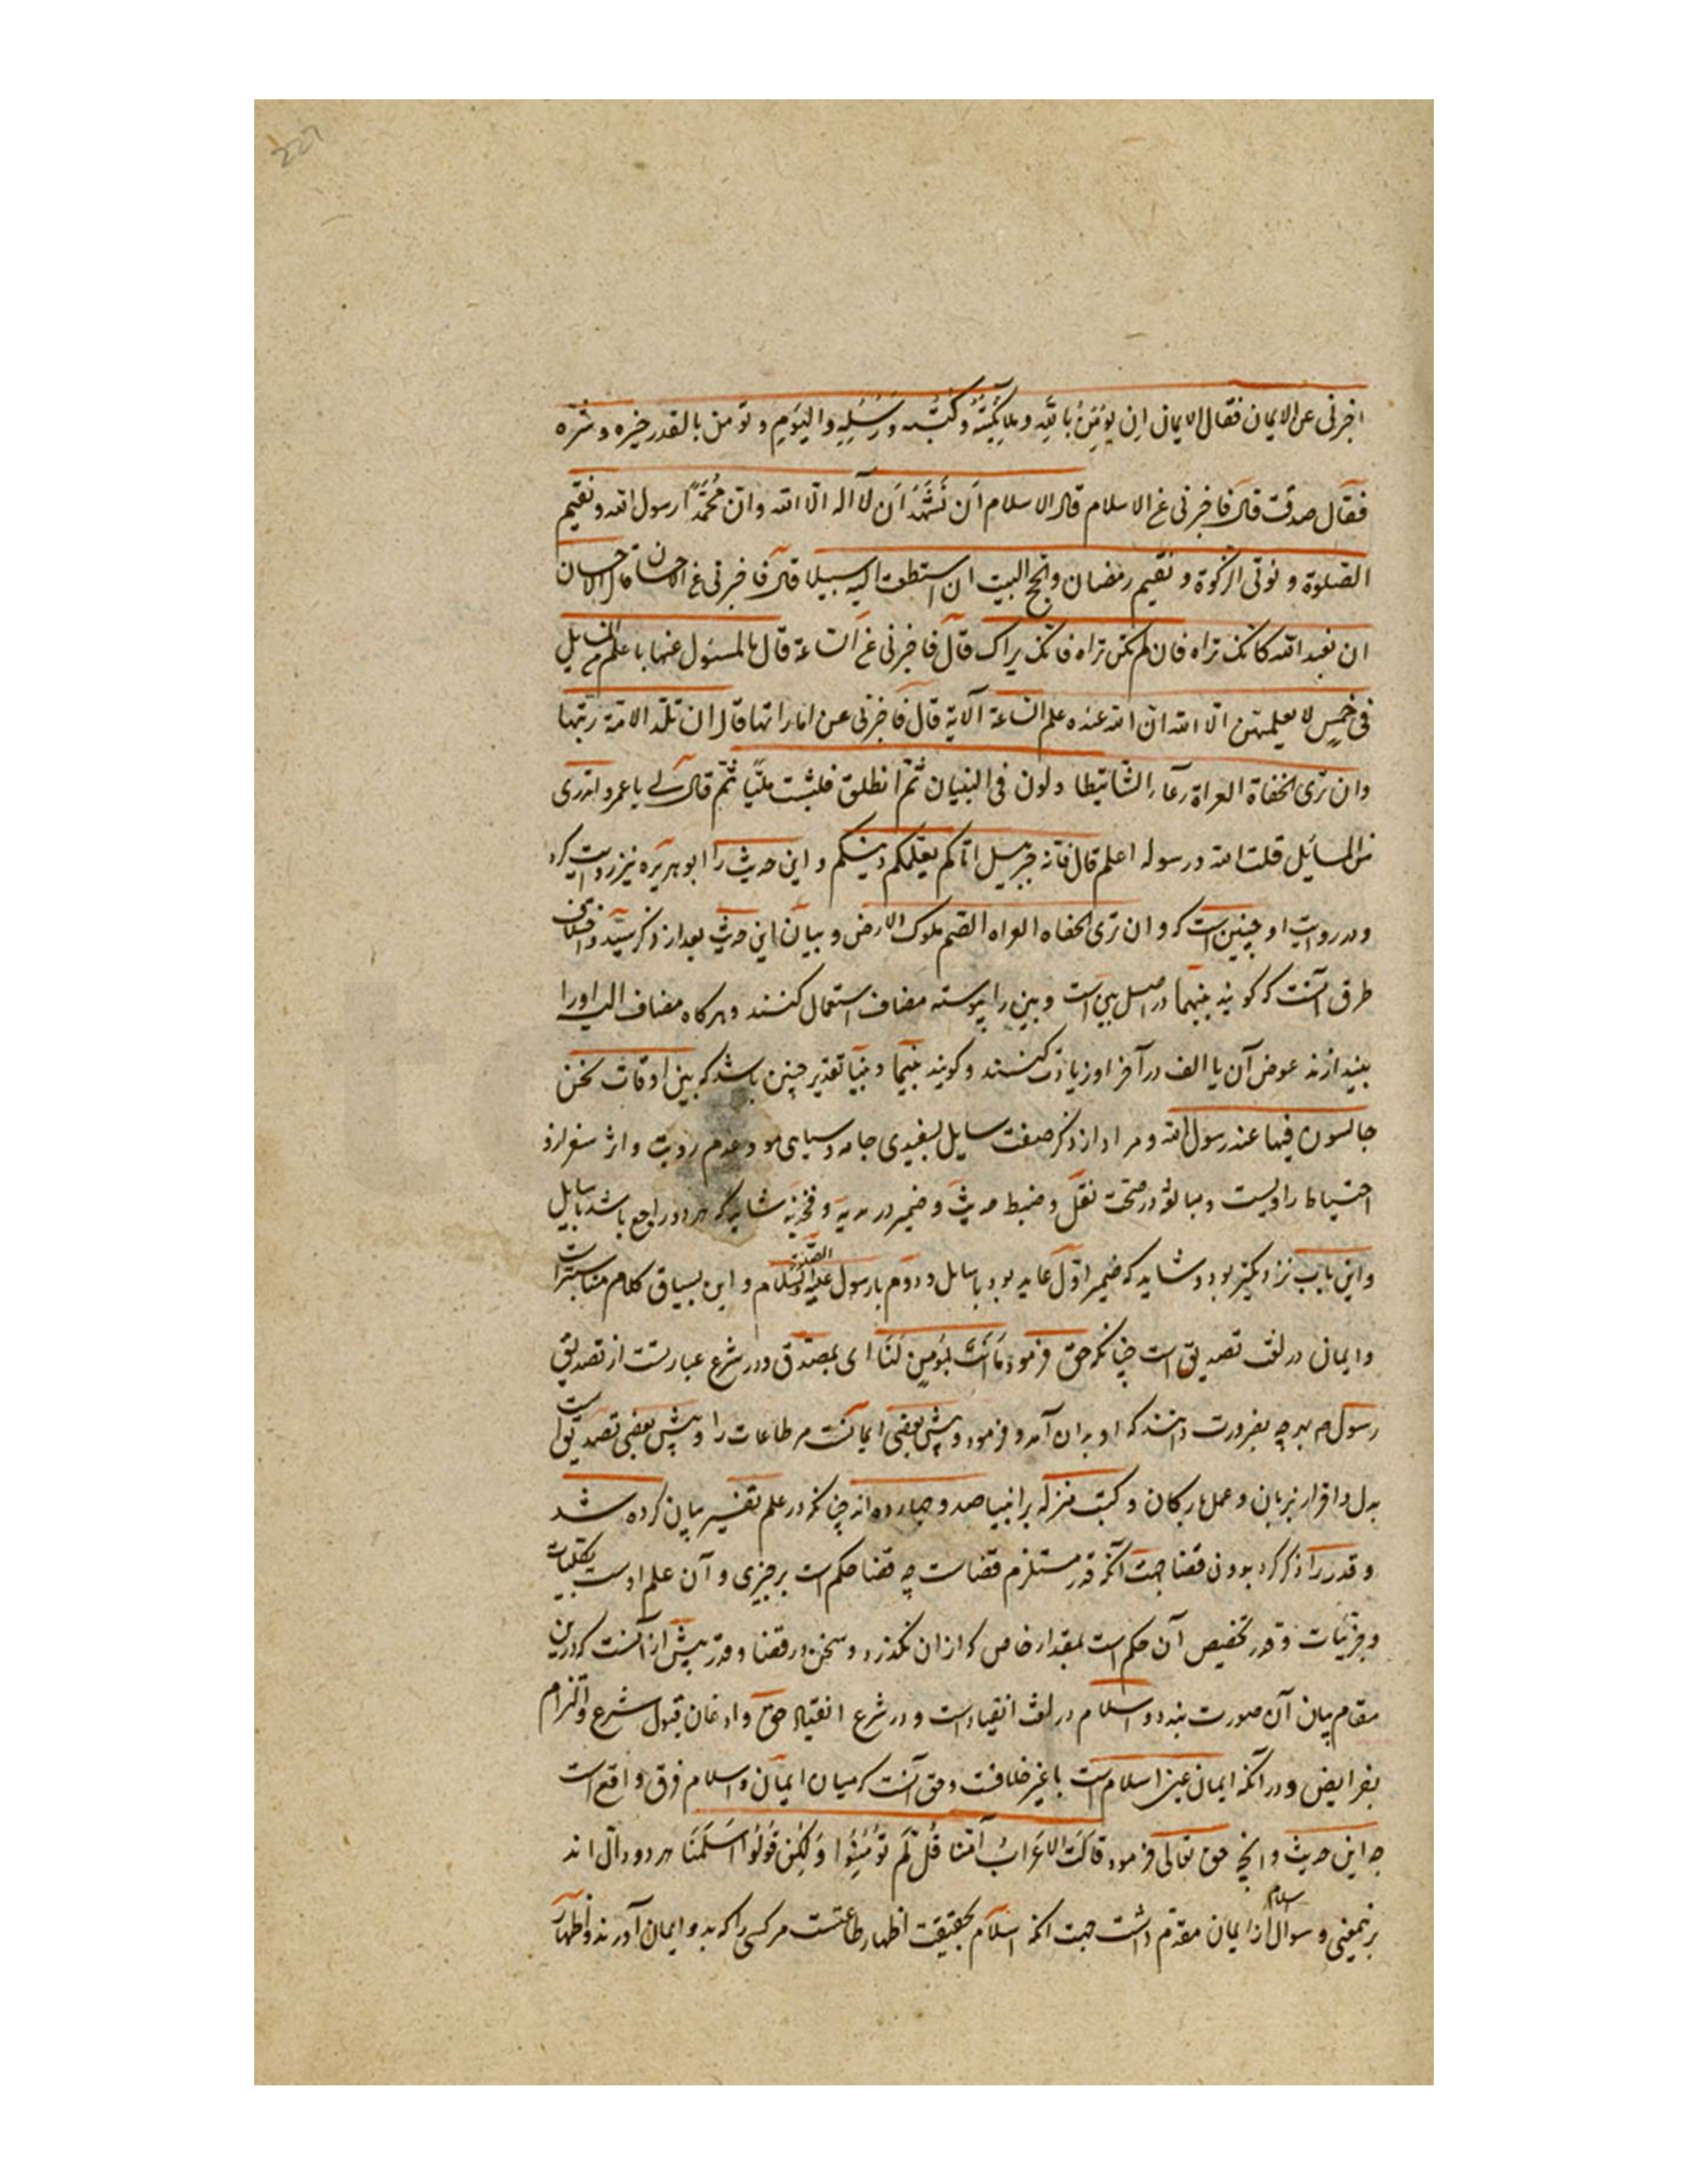 اخبرنی عن الایمان فقال الایمان ان یؤمن بالله وملایکته وکتبه ورسله والیوم وتومن بالقدر خیره وشره
فقال صدقت قال فاخبرنی عن الاسلام قال الاسلام ان تشهد ان لا اله الا الله وان محمدًا رسول الله وتقیم
الصلوة وتوتی الزکوة وتقیم رمضان وتحج البیت ان استطعت الیه سبیلا قال فاخبرنی عن الاحسان قال الاحسان
ان تعبد الله کانک تراه فان لم تکن تراه فانک یراک قال فاخبرنی عن الساعة قال ما المسئول عنها باعلم من السایل
فی خمس لا یعلمهن الا الله ان الله عنده علم الساعة الآیة قال فاخبرنی عن اماراتها قال ان تلد الامة ربتها
وان تری الحفاة العراة رعآء الشا یتطاولون فی البنیان ثم انطلق فلبثت ملیًا ثم قال لی یا عمرو اتدری
من السائل قلت الله ورسوله اعلم قال فانه جبرییل اتاکم یعلمکم دینکم و این حدیث را ابو هریره نیز روایت کرد
ودر روایت او چنین است که وان تری الحفاه العراه الصم ملوک الارض و بیان این حدیث بعد از ذکر سند و اختلاف
طرق آنست که کویند بینهما در اصل بین است و بین را پیوسته مضاف استعمال کنند وهرکاه مضاف الیه اورا
بیندازند عوض آن یا الف در آخر او زیادت کنند وکویند بینما و بینا تقدیر چنین باشد که بین اوقات نحن
جالسون فیها عند رسول الله و مراد از ذکر صفت سایل بسفیدی جامه وسیاهی مو و عدم رویت و اثر سفر ازو
احتیاط راویست ومبالغه در صحت نقل و ضبط حدیث و ضمیر در یدیه و فخذیه شاید که هر دو راجع باشد بسایل
واین بابب نزدیکتر بود و شاید که ضمیر اول عاید بود با سایل و دوم با رسول علیه الصلوة والسلام و این بسیاق کلام مناسبتر است
وایمان در لغت تصدیق است چنانکه حق فرمود ما انت بمؤمن لنا ای بمصدق ودر شرع عبارتست از تصدیق
رسول بهر چه بضرورت دانند که او بدان آمد و فرمود و پیش بعضی ایمانست مر طاعات را و پیش بعضی تصدیق است
بدل واقرار بزبان وعمل بارکان و کتب منزله بر انبیا صد و چهارده اند چنانکه در علم تفسیر بیان کرده شد
و قدر را ذکر کرد بدون قضا جهت آنکه قدر مستلزم قضاست چه قضا حکم است بر چیزی و آن علم اوست بکلیات
وجزئیات و قدر تخصیص آن حکم است بمقدار خاص که از ان نکذرد و سخن در قضا و قدر پیش ازآنست که درین
مقام بیان آن صورت بندد و اسلام در لغت انقیاد است و در شرع انقیاد حق و اذعان قبول شرع والتزام
بفرایض و در آنکه ایمان عین اسلام است یا غیر خلافست وحق آنست که میان ایمان و اسلام فرق واقع است
چه این حدیث و آنچه حق تعالی فرمود قالت الاعراب آمنا قل لم تؤمنوا ولکن قولوا اسلمنا هر دو دال اند
برینمعنی و سوال اسلام از ایمان مقدم داشت جهت آنکه اسلام بحقیقت اظهار طاعتست مر کسی را که بدو ایمان آورند و اظهار